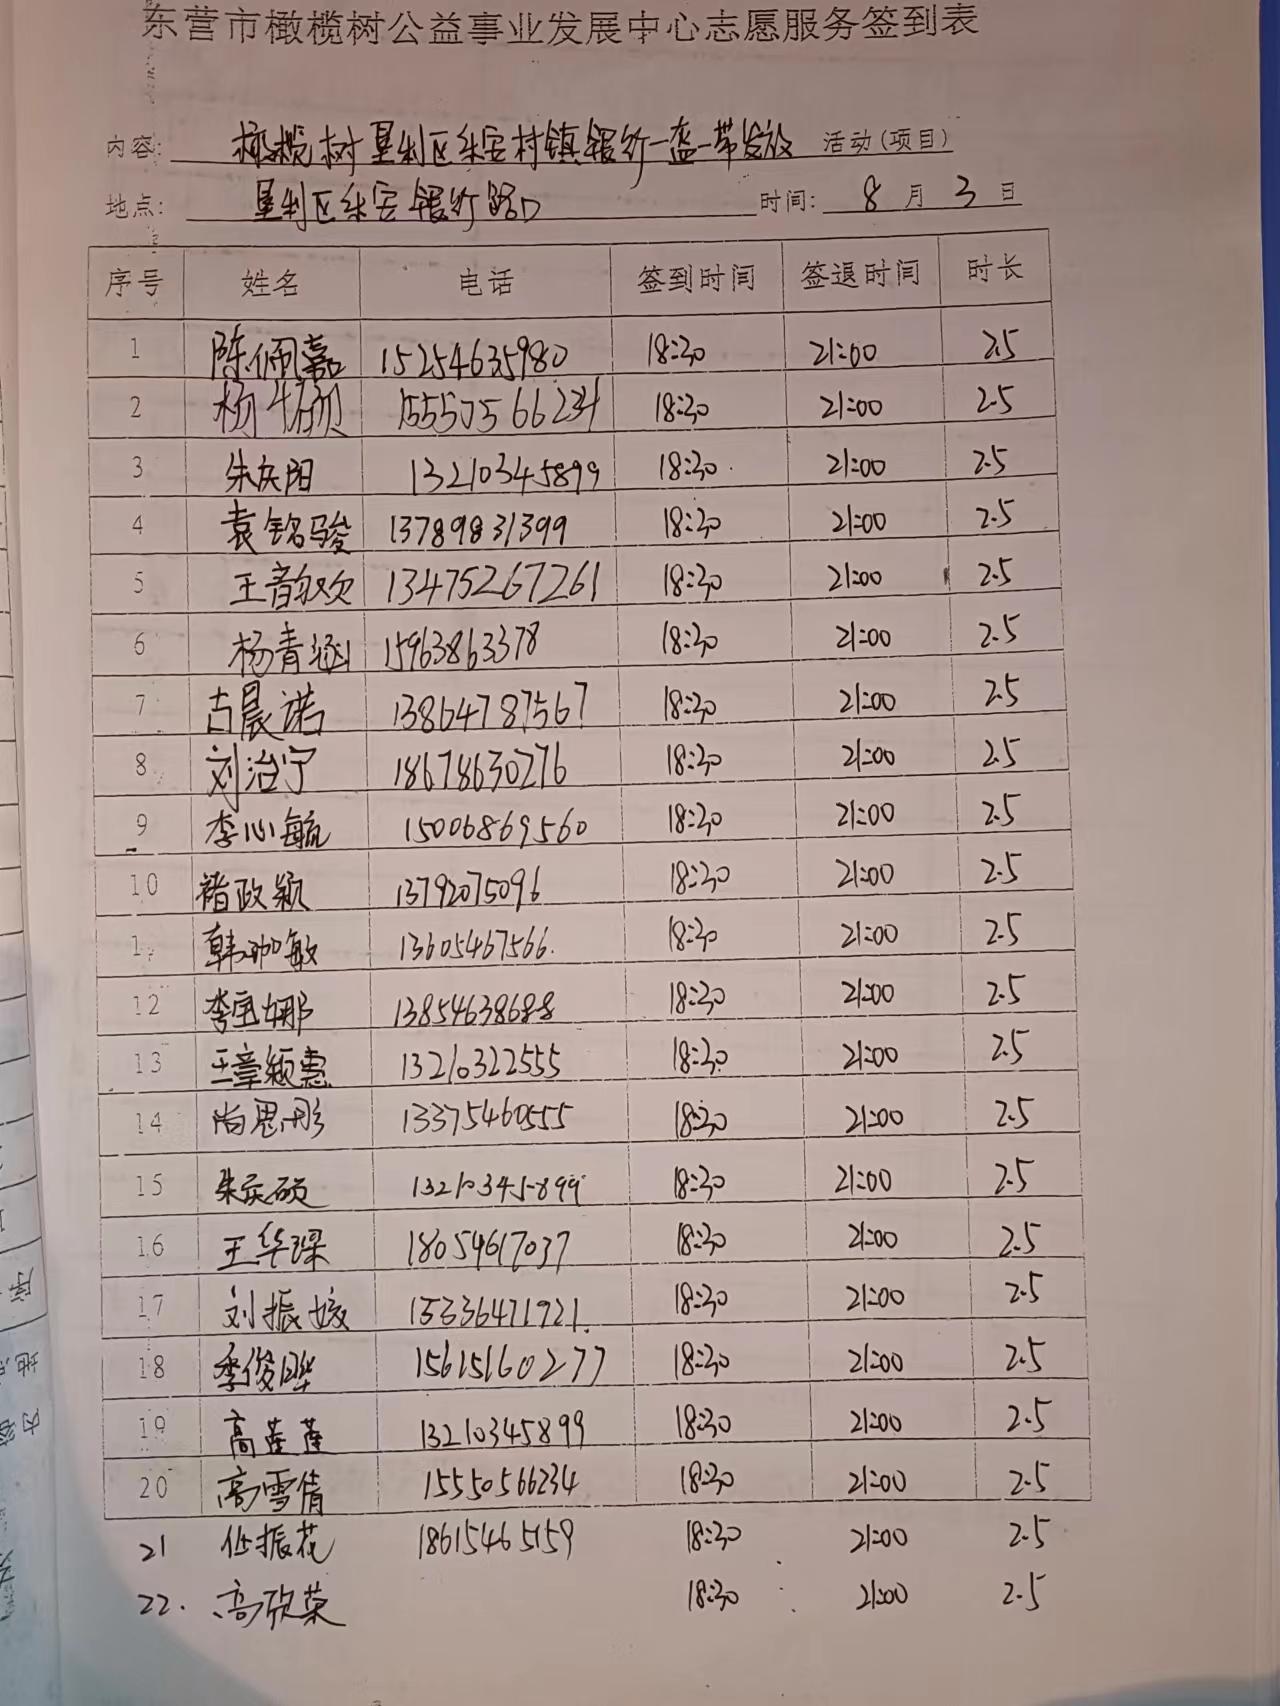 东营市橄榄树公益事业发展中心志愿服务签到表
内容: 橄榄树垦利区乐安村镇银行一盔一带发放 活动(项目)
地点: 垦利区乐安银行路口 时间: 8 月 3 日
序号 姓名 电话 签到时间 签退时间 时长
1 陈佩嘉 15254635980 18:30 21:00 2.5
2 杨 15550566234 18:30 21:00 2.5
3 朱庆阳 13210345899 18:30 21:00 2.5
4 袁铭骏 13789831399 18:30 21:00 2.5
5 王韵欢 13475267261 18:30 21:00 2.5
6 杨青涵 15963863378 18:30 21:00 2.5
7 古晨诺 13864787567 18:30 21:00 2.5
8 刘治宁 18678630276 18:30 21:00 2.5
9 李心毓 15006869560 18:30 21:00 2.5
10 褚政颖 13792075096 18:30 21:00 2.5
1 韩珈敏 13605467566 18:30 21:00 2.5
12 李宜娜 13854638688 18:30 21:00 2.5
13 王章颖惠 13210322555 18:30 21:00 2.5
14 尚思彤 13375460555 18:30 21:00 2.5
15 朱庆硕 13210345899 18:30 21:00 2.5
16 王华琛 18054617037 18:30 21:00 2.5
17 刘振 15336471921 18:30 21:00 2.5
18 季俊晔 15615160277 18:30 21:00 2.5
19 高莲莲 13210345899 18:30 21:00 2.5
20 高雪倩 15550566234 18:30 21:00 2.5
21 任振花 18615465159 18:30 21:00 2.5
22. 高欣荣 18:30 21:00 2.5
序
地点
内容